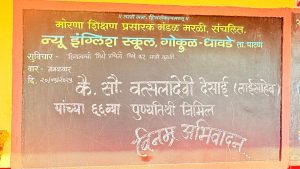 मोरणा शिक्षण प्रसारक मंडळ मरळी, संचलित,
न्यू इंग्लिश स्कूल, गोकुळ-धावडे (ता. पाटण)
सुविचार -
वार - मंगळवार
दि.
कै. सौ. वत्सलादेवी देसाई (ताईसाहेब)
यांच्या ६६व्या पुण्यतिथी निमित्त
विनम्र अभिवादन